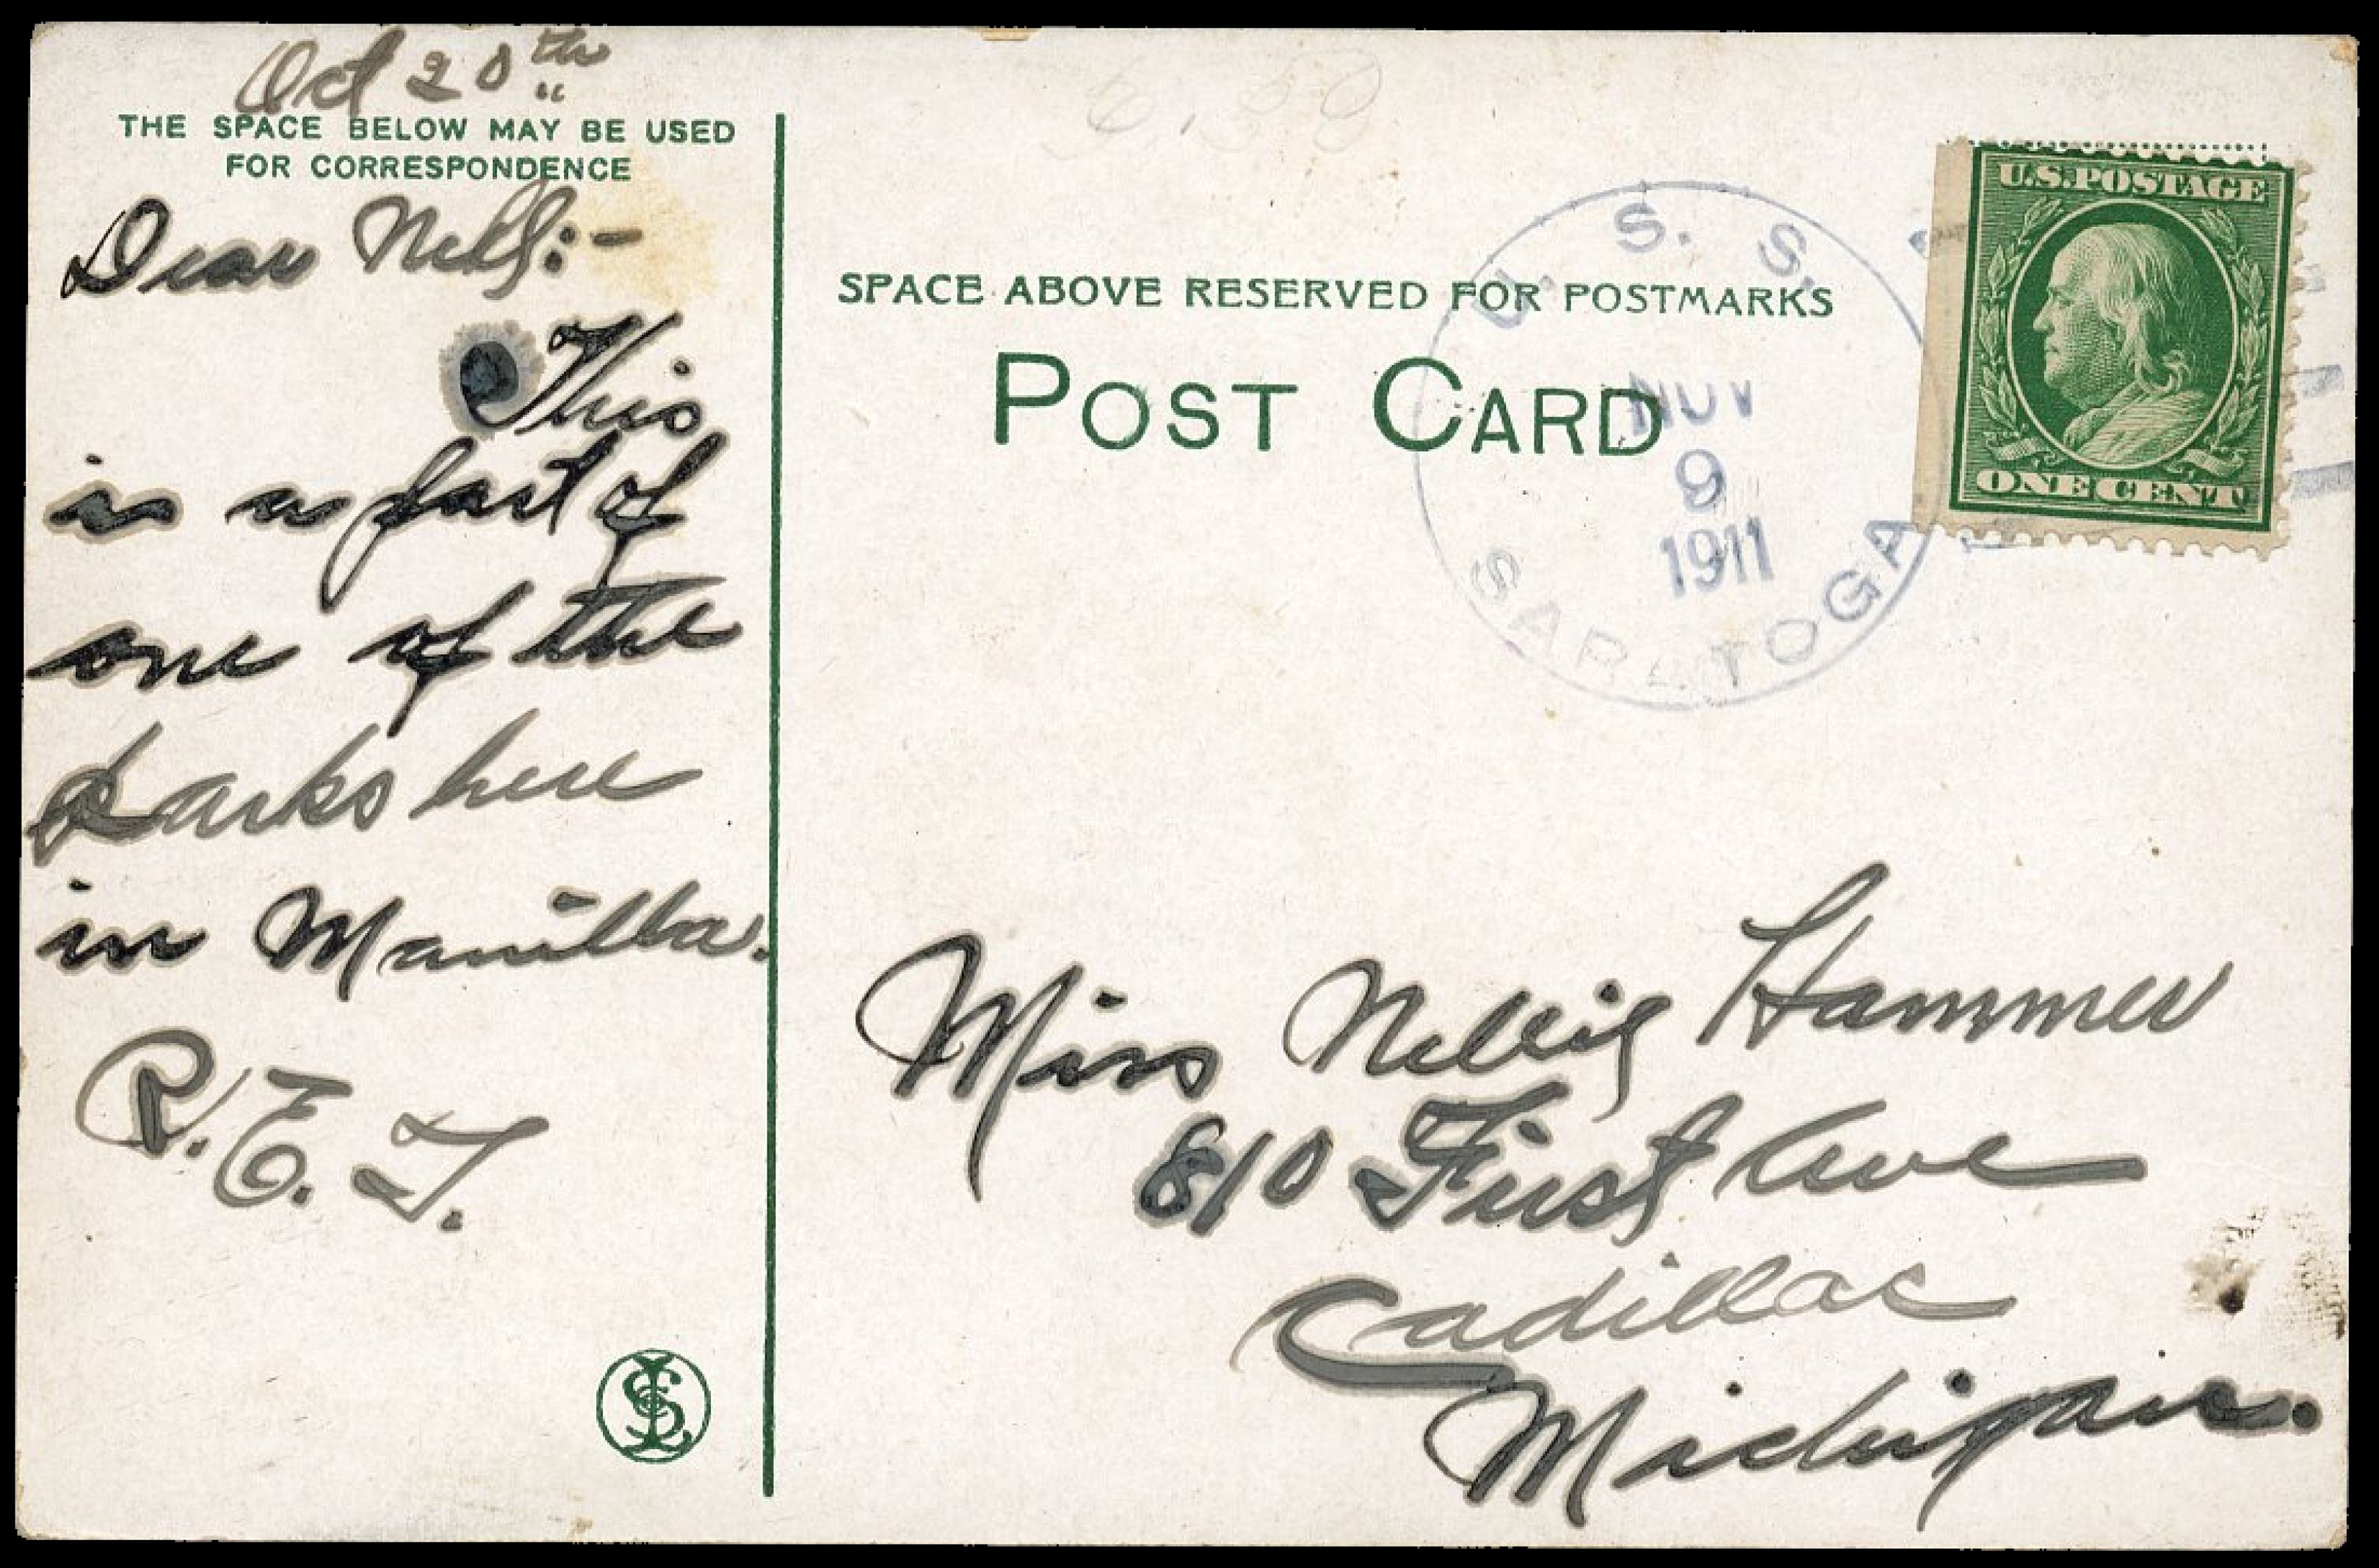 Oct 20th
THE SPACE BELOW MAY BE USED
FOR CORRESPONDENCE
Dear Nell:-
This
is a part of
one of the
parks here
in Manilla.
R. E. T.
6.50
SPACE ABOVE RESERVED FOR POSTMARKS
POST CARD
U. S. S.
NOV
9
1911
SARATOGA
U.S. POSTAGE
ONE CENT
Miss Nellie Hammer
810 First Ave
Cadillac
Michigan.